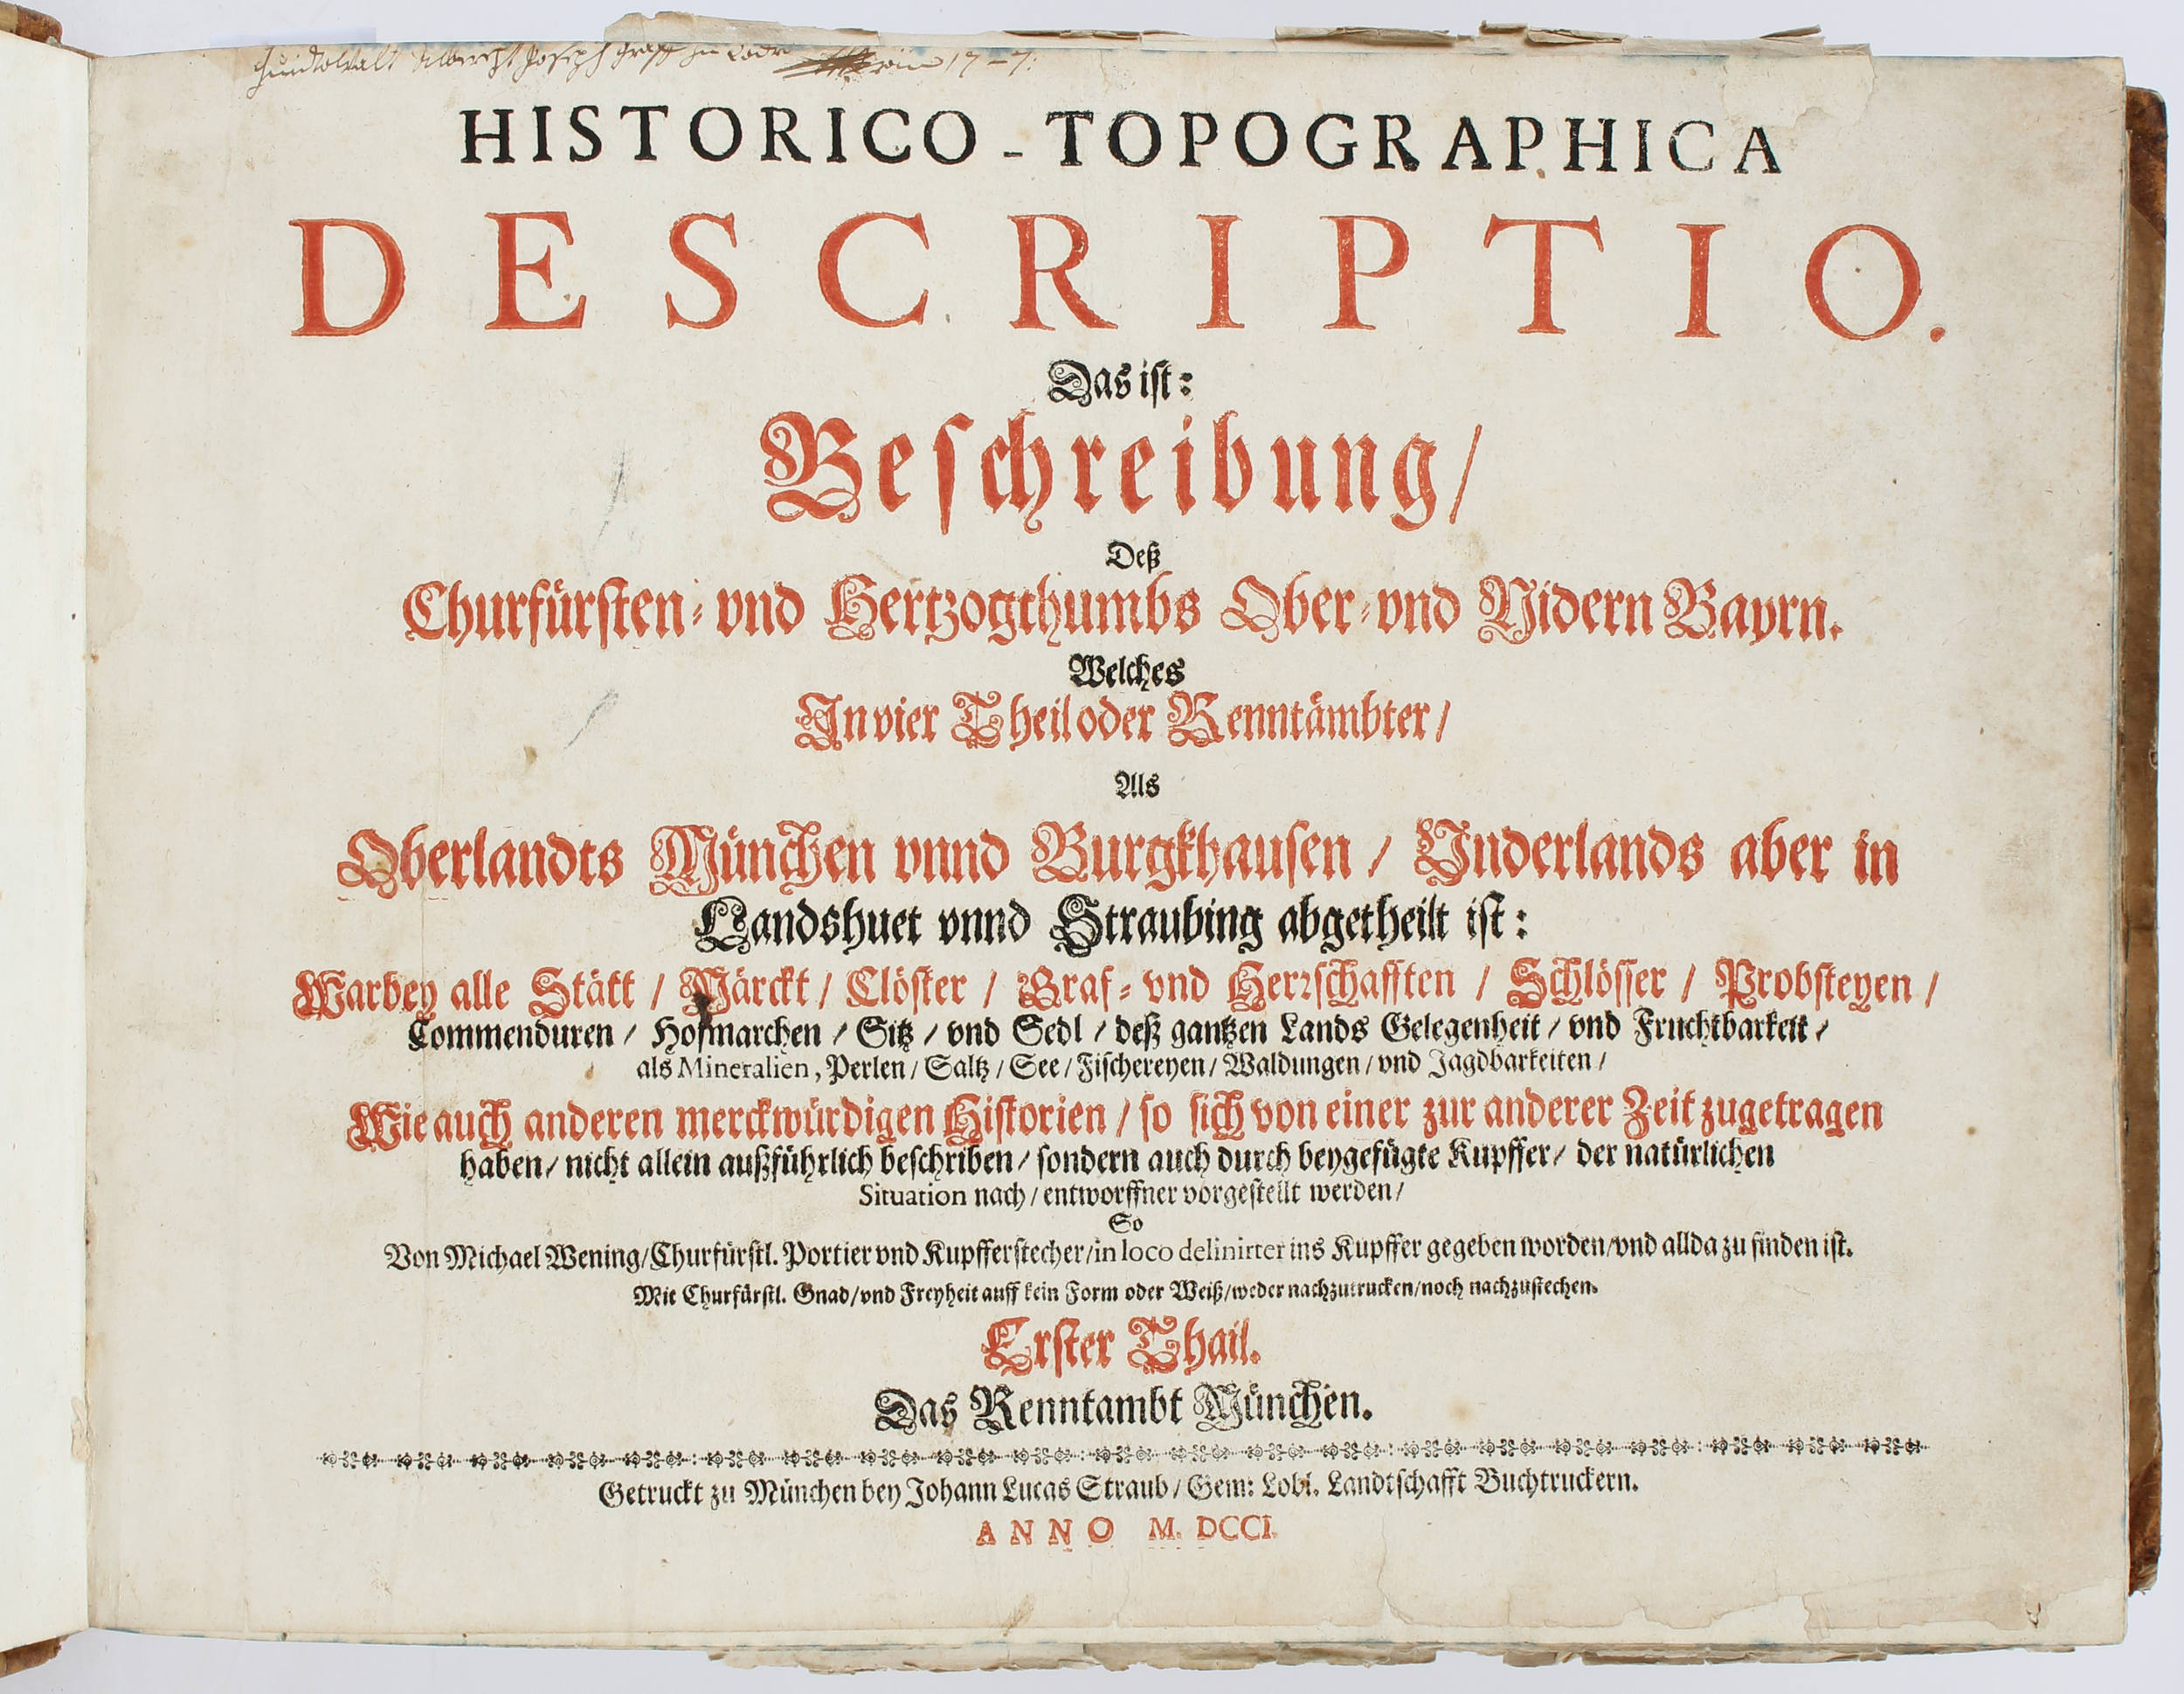 Albrecht Joseph Graff zu 17-7.
HISTORICO-TOPOGRAPHICA
DESCRIPTIO.
Das ist:
Beschreibung/
Deß
Churfürsten- vnd Hertzogthumbs Ober- vnd Nidern Bayrn.
Welches
In vier Theil oder Renntämbter/
Als
Oberlandts München vnnd Burgkhausen / Vnderlands aber in
Landshuet vnnd Straubing abgetheilt ist:
Warbey alle Stätt / Märckt / Clöster / Graf- vnd Herrschafften / Schlösser / Probsteyen /
Commenduren / Hofmarchen / Sitz / vnd Sedl / deß gantzen Lands Gelegenheit / vnd Fruchtbarkeit /
als Mineralien, Perlen / Saltz / See / Fischereyen / Waldungen / vnd Jagdbarkeiten /
Wie auch anderen merckwürdigen Historien / so sich von einer zur anderer Zeit zugetragen
haben / nicht allein außführlich beschriben / sondern auch durch beygefügte Kupffer / der natürlichen
Situation nach / entworffner vorgestellt werden /
So
Von Michael Wening/Churfürstl. Portier vnd Kupfferstecher/in loco delinirter ins Kupffer gegeben worden/vnd allda zu finden ist.
Mit Churfürstl. Gnad/vnd Freyheit auff kein Form oder Weiß/weder nachzutrucken/noch nachzustechen.
Erster Thail.
Das Renntambt München.
Getruckt zu München bey Johann Lucas Straub / Gem: Lobl. Landtschafft Buchtruckern.
ANNO M. DCCI.